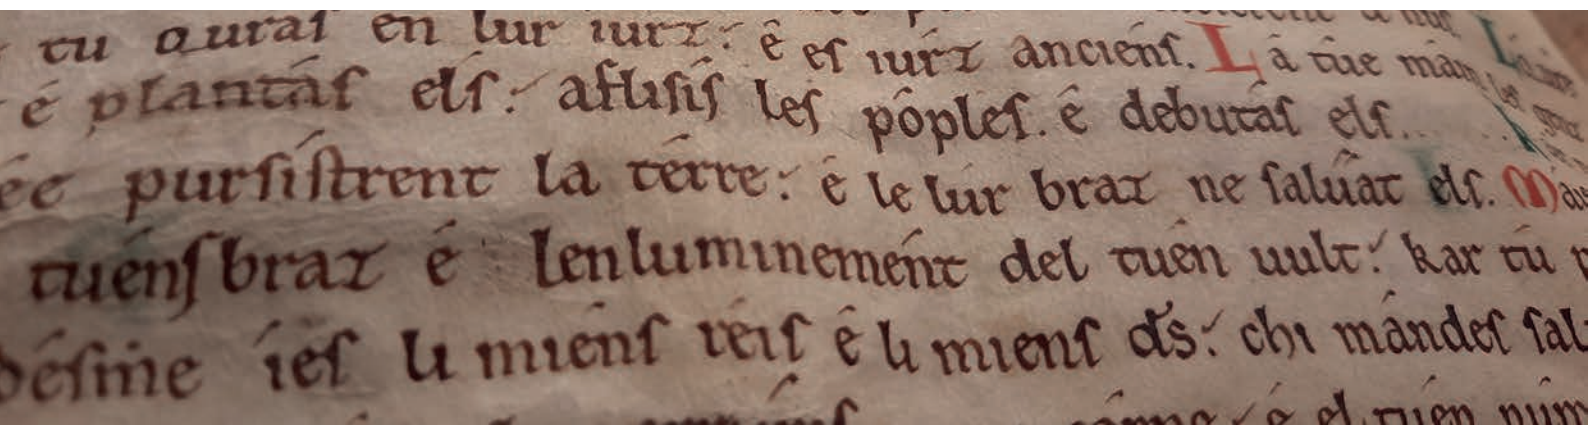 tu ourас en lur iurz: é es iúrz anciens. L a túe mám
é plantás els: aflisis les póples. é debutás els.
ée pursistrent la térre: é le lúr braz ne saluát els. Má
tuens braz é lenluminement del tuen uult: kar tú
méisme iés li miens réis é li miens ds: chi mándes sal
é el tuén núm